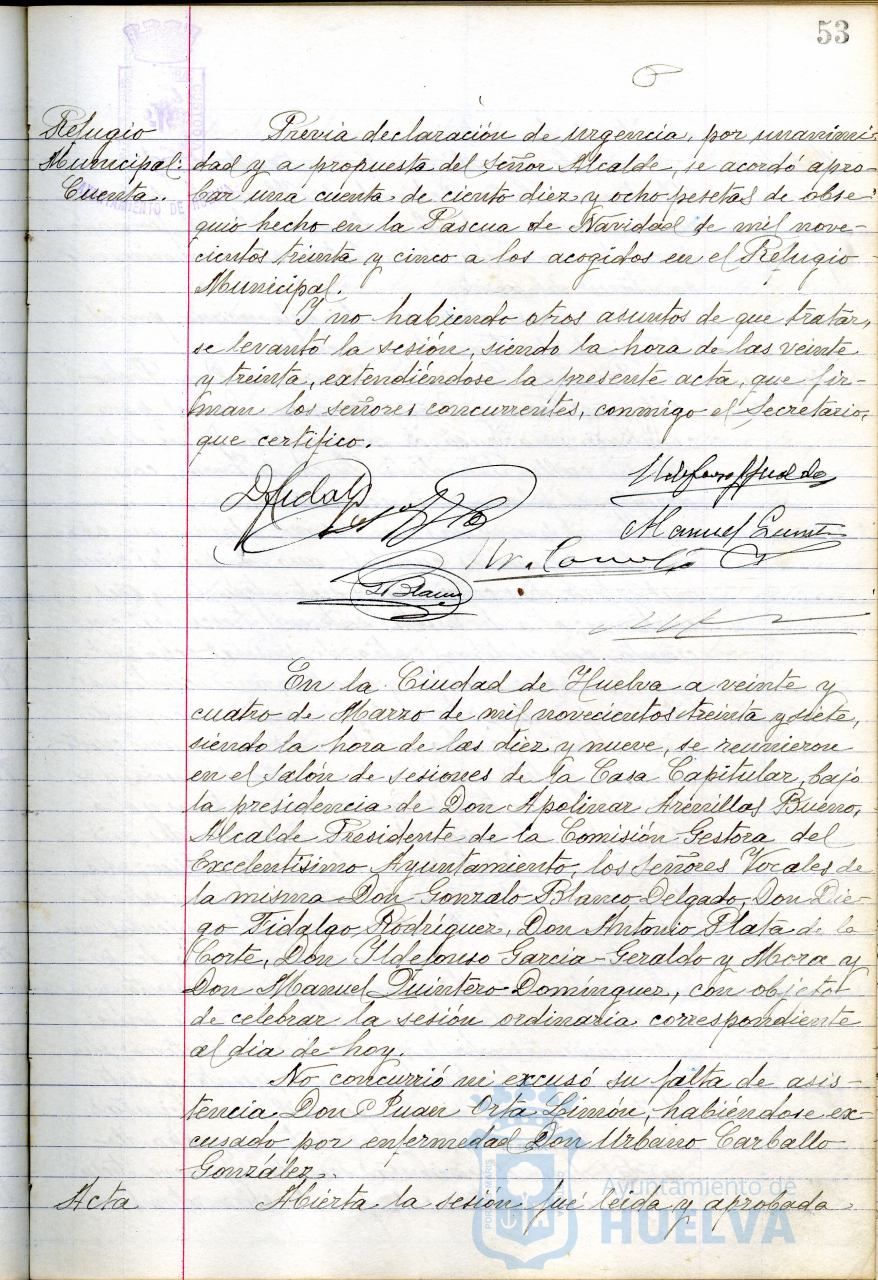 53
Refugio
Municipal:
Cuenta.
Prévia declaración de urgencia, por unanimi-
dad y a propuesta del señor Alcalde, se acordó apro-
bar una cuenta de ciento diez y ocho pesetas de obse-
quio hecho en la Pascua de Navidad de mil nove-
cientos treinta y cinco a los acogidos en el Refugio
Municipal.
Y no habiendo otros asuntos de que tratar,
se levantó la sesión, siendo la hora de las veinte
y treinta, extendiéndose la presente acta, que fir-
man los señores concurrentes, conmigo el Secretario,
que certifico.
D Fidalgo
Manuel Quintero
G Blanco
En la Ciudad de Huelva a veinte y
cuatro de Marzo de mil novecientos treinta y siete,
siendo la hora de las diez y nueve, se reunieron
en el salón de sesiones de la Casa Capitular, bajo
la presidencia de Don Apolinar Arenillas Bueno,
Alcalde Presidente de la Comisión Gestora del
Excelentísimo Ayuntamiento, los señores Vocales de
la misma Don Gonzalo Blanco Delgado, Don Die-
go Fidalgo Rodríguez, Don Antonio Plata de la
Corte, Don Ildefonso García-Geraldo y Mora y
Don Manuel Quintero Domínguez, con objeto
de celebrar la sesión ordinaria correspondiente
al día de hoy.
No concurrió ni excusó su falta de asis-
tencia Don Juan Orta Limón, habiéndose ex-
cusado por enfermedad Don Urbano Carballo
González.
Acta
Abierta la sesión fué leida y aprobada
Ayuntamiento de
HUELVA